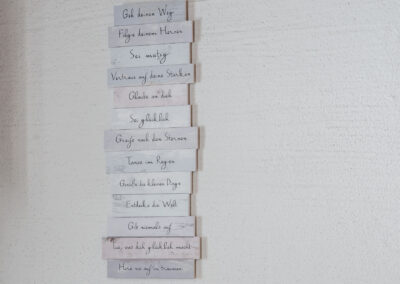 Geh deinen Weg
Folge deinem Herzen
Sei mutig
Vertraue auf deine Stärken
Glaube an dich
Sei glücklich
Greife nach den Sternen
Tanze im Regen
Genieße die kleinen Dinge
Entdecke die Welt
Gib niemals auf
Tu, was dich glücklich macht
Höre nie auf zu träumen